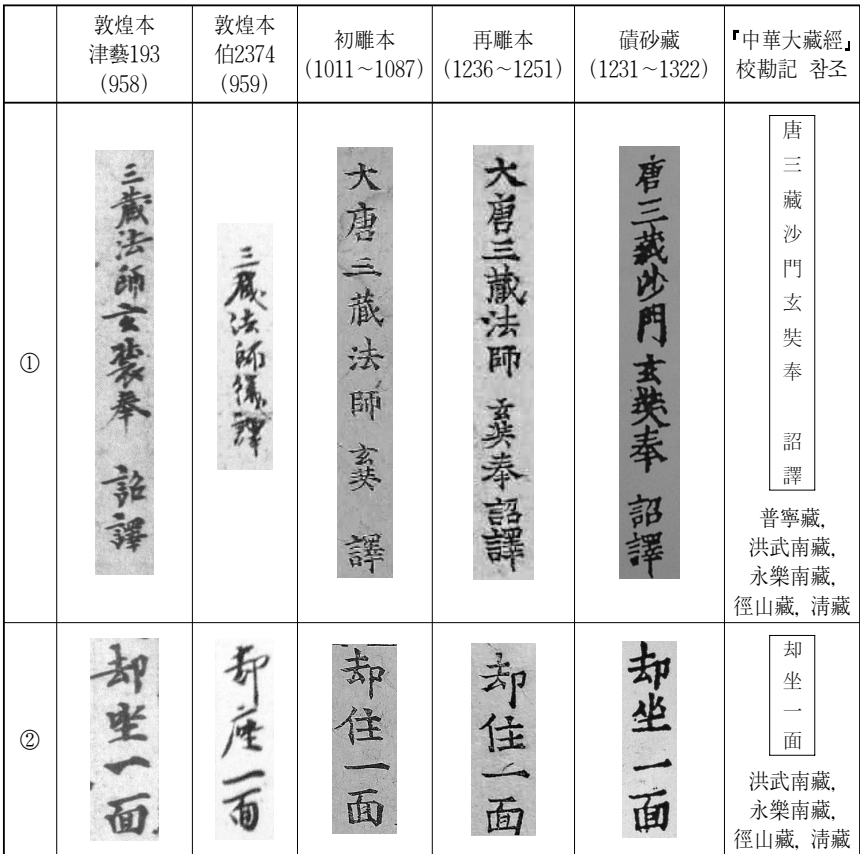 敦煌本
津藝193
(958)
敦煌本
伯2374
(959)
初雕本
(1011～1087)
再雕本
(1236～1251)
磧砂藏
(1231～1322)
『中華大藏經』
校勘記 참조
①
三藏法師玄奘奉 詔譯
三藏法師 譯
大唐三藏法師 玄奘 譯
大唐三藏法師 玄奘奉詔譯
唐三藏沙門玄奘奉 詔譯
唐三藏沙門玄奘奉 詔譯
普寧藏,
洪武南藏,
永樂南藏,
徑山藏, 淸藏
②
却坐一面
却座一面
却住一面
却住一面
却坐一面
却坐一面
洪武南藏,
永樂南藏,
徑山藏, 淸藏